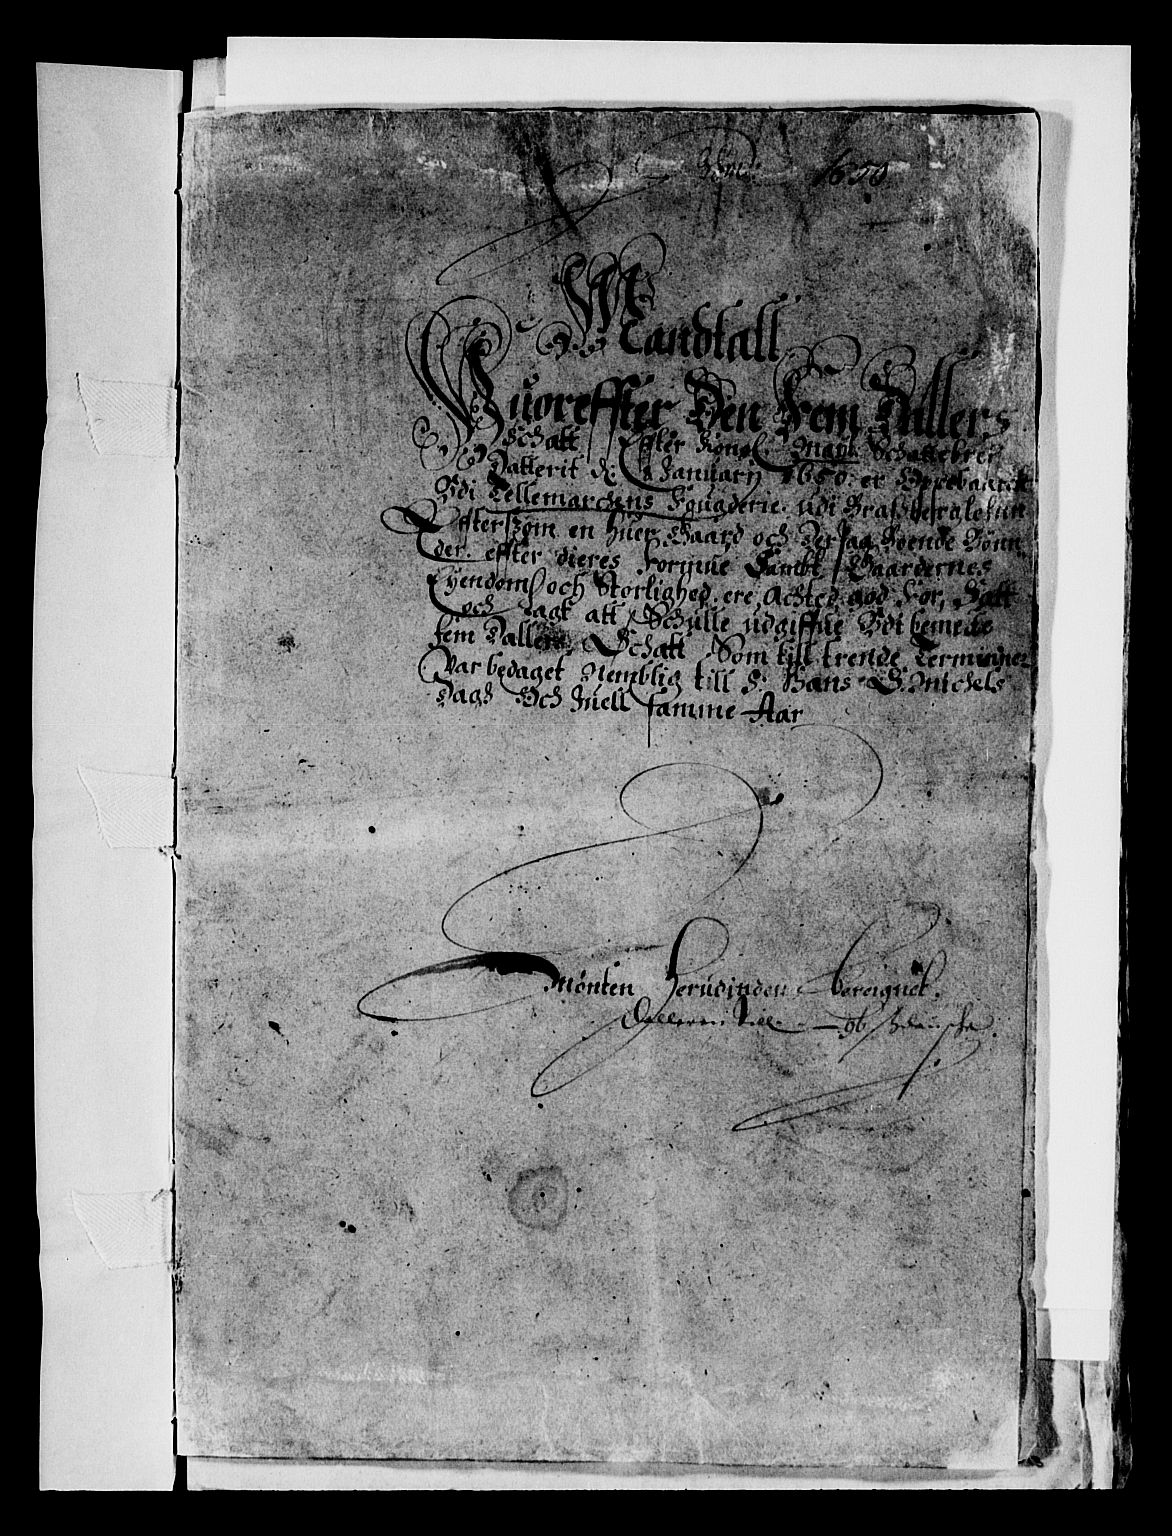 1650
Mandtall
Huoreffter Den Fem Dallers
Schatt Effter Kong: Mayt: Schattebreff
Datterit d: 1 January 1650: er Oprebaaret
Vdi Tellemarchens Fougderie. udi Bratzberglehnn
Effterszom en huer Gaard och der paa Boende Bønn
der. effter dieres Formue Sambt Gaardernes
Eyendomb och Storlighed ere Achted god For, Satt
och Lagt att Schulle udgiffue Vdi bemelte
fem Dallers Schatt Som till trende Terminner
Var bedaget Nemblig till S: Hans S: Michels
Dags Och Juell Samme Aar
Mønten Herudinden Beregnet.
Dalleren till 96